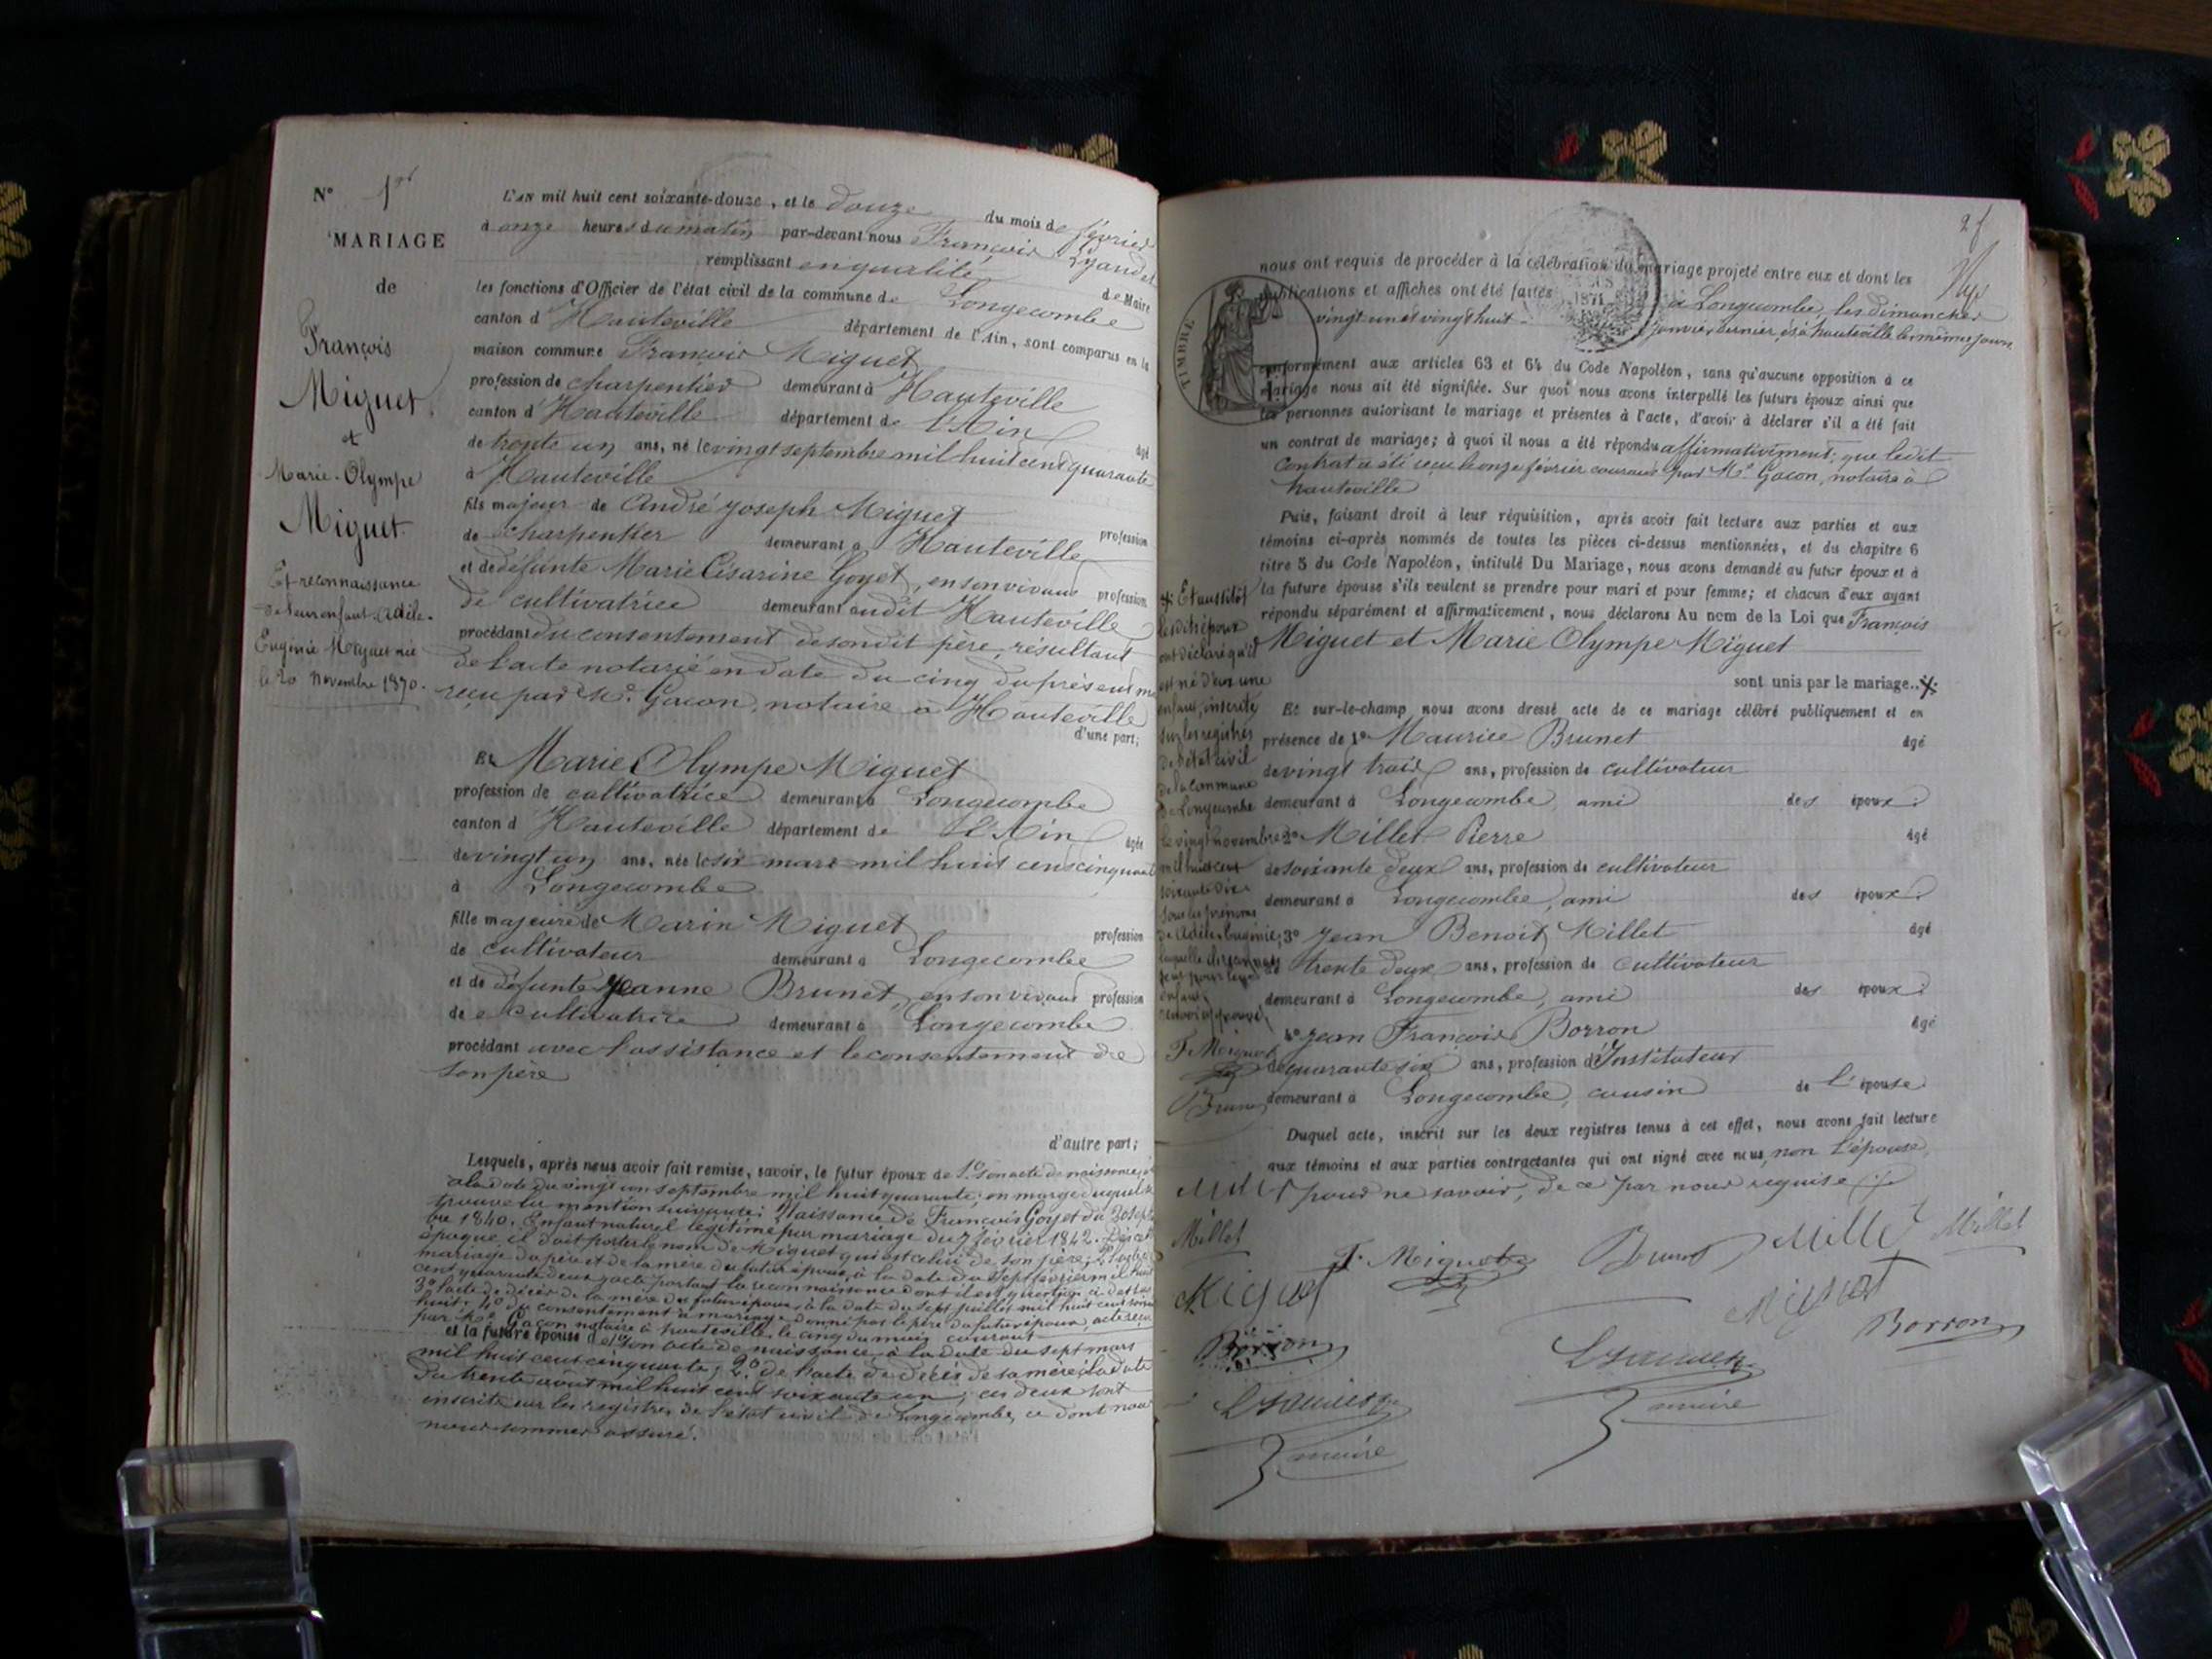 N° 1er
MARIAGE
de
François
Miguet
et
Marie-Olympe
Miguet.
Et reconnaissance
de leur enfant Adèle-
Eugénie Miguet née
le 20 novembre 1870.
L'AN mil huit cent soixante-douze, et le douze du mois de février
à onze heures du matin par-devant nous François Lyaudet
remplissant en qualité de Maire
les fonctions d'Officier de l'état civil de la commune de Longecombe
canton d'Hauteville département de l'Ain, sont comparus en la
maison commune François Miguet
profession de charpentier demeurant à Hauteville
canton d'Hauteville département de l'Ain âgé
de trente un ans, né le vingt septembre mil huit cent quarante
à Hauteville
fils majeur de André Joseph Miguet profession
de charpentier demeurant à Hauteville
et de défunte Marie Césarine Goyet, en son vivant profession
de cultivatrice demeurant audit Hauteville
procédant du consentement de son dit père, résultant
de l'acte notarié en date du cinq du présent mois
reçu par Me. Gacon, notaire à Hauteville
d'une part;
Et Marie Olympe Miguet
profession de cultivatrice demeurant à Longecombe
canton d'Hauteville département de l'Ain âgée
de vingt un ans, née le six mars mil huit cent cinquante
à Longecombe
fille majeure de Marin Miguet profession
de cultivateur demeurant à Longecombe
et de défunte Jeanne Brunet, en son vivant profession
de cultivatrice demeurant à Longecombe
procédant avec l'assistance et le consentement de
son père
d'autre part;
Lesquels, après nous avoir fait remise, savoir, le futur époux de 1° son acte de naissance,
à la date du vingt un septembre mil huit quarante; en marge duquel se
trouve la mention suivante: Naissance de François Goyet du 20 septem
bre 1840. Enfant naturel légitimé par mariage du 7 février 1842. Dès cette
époque, il doit porter le nom de Miguet qui est celui de son père; 2° l'acte de
mariage du père et de la mère du futur époux, à la date du sept février mil huit
cent quarante deux, acte portant la reconnaissance dont il est question ci-dessus
3° l'acte de décès de la mère du futur époux, à la date du sept juillet mil huit cent soixante
huit. 4° du consentement à mariage donné par le père du futur époux, acte reçu
par Me Gacon notaire à hauteville, le cinq du mois courant
et la future épouse de 1° son acte de naissance, à la date du sept mars
mil huit cent cinquante; 2° de l'acte de décès de sa mère à la date
du trente août mil huit cent soixante un, ces deux sont
inscrits sur les registres de l'état civil de Longecombe, ce dont nous
nous sommes assuré.
nous ont requis de procéder à la célébration du mariage projeté entre eux et dont les
publications et affiches ont été faites à Longecombe, les dimanches
vingt un et vingt huit janvier dernier, et à hauteville les mêmes jours
TIMBRE
1871
conformément aux articles 63 et 64 du Code Napoléon, sans qu'aucune opposition à ce
mariage nous ait été signifiée. Sur quoi nous avons interpellé les futurs époux ainsi que
les personnes autorisant le mariage et présentes à l'acte, d'avoir à déclarer s'il a été fait
un contrat de mariage; à quoi il nous a été répondu affirmativement; que ledit
contrat a été reçu le onze février courant par Me. Gacon, notaire à
hauteville
Puis, faisant droit à leur réquisition, après avoir fait lecture aux parties et aux
témoins ci-après nommés de toutes les pièces ci-dessus mentionnées, et du chapitre 6
titre 5 du Code Napoléon, intitulé Du Mariage, nous avons demandé au futur époux et à
la future épouse s'ils veulent se prendre pour mari et pour femme; et chacun d'eux ayant
répondu séparément et affirmativement, nous déclarons Au nom de la Loi que François
Miguet et Marie Olympe Miguet
sont unis par le mariage..
Et sur-le-champ nous avons dressé acte de ce mariage célébré publiquement et en
présence de 1° Maurice Brunet âgé
de vingt trois ans, profession de cultivateur
demeurant à Longecombe, ami des époux.
2° Millet Pierre âgé
de soixante deux ans, profession de cultivateur
demeurant à Longecombe, ami des époux.
3° Jean Benoît Millet âgé
de trente deux ans, profession de cultivateur
demeurant à Longecombe, ami des époux.
4° Jean François Borron âgé
de quarante six ans, profession d'Instituteur
demeurant à Longecombe, cousin de l'épouse
Duquel acte, inscrit sur les deux registres tenus à cet effet, nous avons fait lecture
aux témoins et aux parties contractantes qui ont signé avec nous, non l'épouse,
pour ne savoir, de ce par nous requise
Et aussitôt
lesdits époux
ont déclaré qu'il
est né d'eux une
enfant, inscrite
sur les registres
de l'état civil
de la commune
de Longecombe
le vingt novembre
mil huit cent
soixante dix
sous les prénoms
de Adèle Eugénie;
laquelle
enfant
F. Miguet
Millet
Miguet
Borron
maire
F. Miguet Brunet Millet Millet
Miguet
Borron
maire